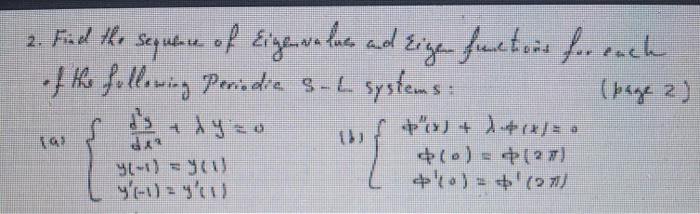 2. Find the sequence of Eigenvalues and Eigen functions for each
of the following Periodic S-L systems: (page 2)
(a) { d²y/dx² + λy = 0 (b) { φ''(x) + λφ(x) = 0
y(-1) = y(1) φ(0) = φ(2π)
y'(-1) = y'(1) φ'(0) = φ'(2π)